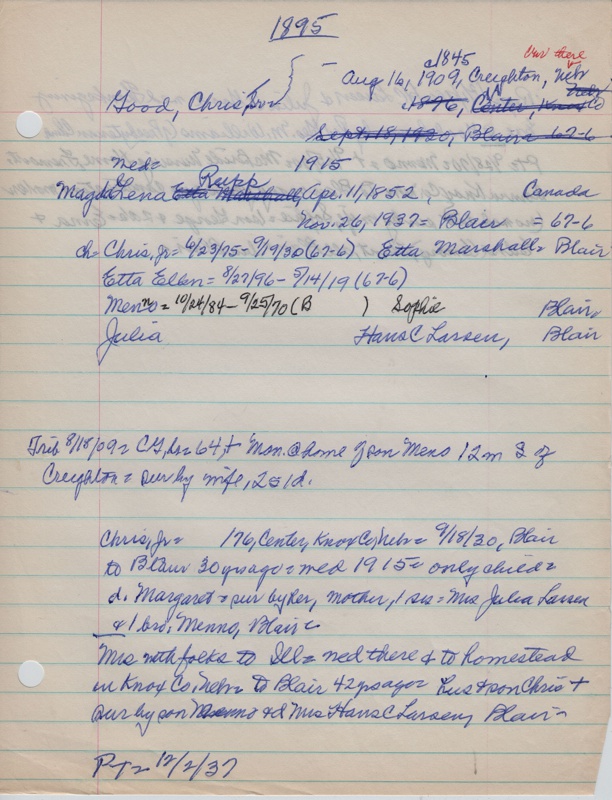 1895
c1845
bur there
Aug 16, 1909, Creighton, Nebr
Good, Chris, Sr
1876, Center, Knox Co
Nebr
Sept. 18, 1930, Blair = 67-6
med= 1915
Rupp
Magdalena Etta Marshall, Apr. 11, 1852, Canada
Nov. 26, 1937= Blair = 67-6
ch= Chris, Jr= 6/23/75-9/19/30 (67-6) Etta Marshall= Blair
Etta Ellen= 8/27/96- 5/14/19 (67-6)
Menno= 10/24/84- 9/25/70 (B ) Sophie Blair
Julia Hans C Larsen, Blair
Trib 8/18/09= C G, Sr= 64, + Mon. @ home of son Meno 12 m S of
Creighton= sur by wife, 2s 1d.
Chris, Jr= 176, Center, Knox Co, Nebr= 9/18/30, Blair
to Blair 30 yrs ago= med 1915= only child=
d. Margaret= sur by her, mother, 1 sis= Mrs Julia Larsen
& 1 bro, Menno, Blair=
Mrs with folks to Ill= med there & to homestead
in Knox Co, Nebr= to Blair 42 ys ago= hus & son Chris +
sur by son Menno & d Mrs Hans C Larsen, Blair=
PT= 12/2/37